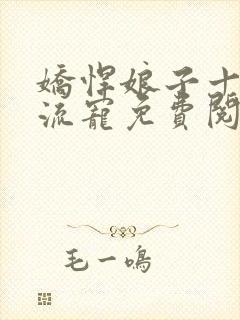 嬌悍娘子十
流寵免費閱
毛一鳴